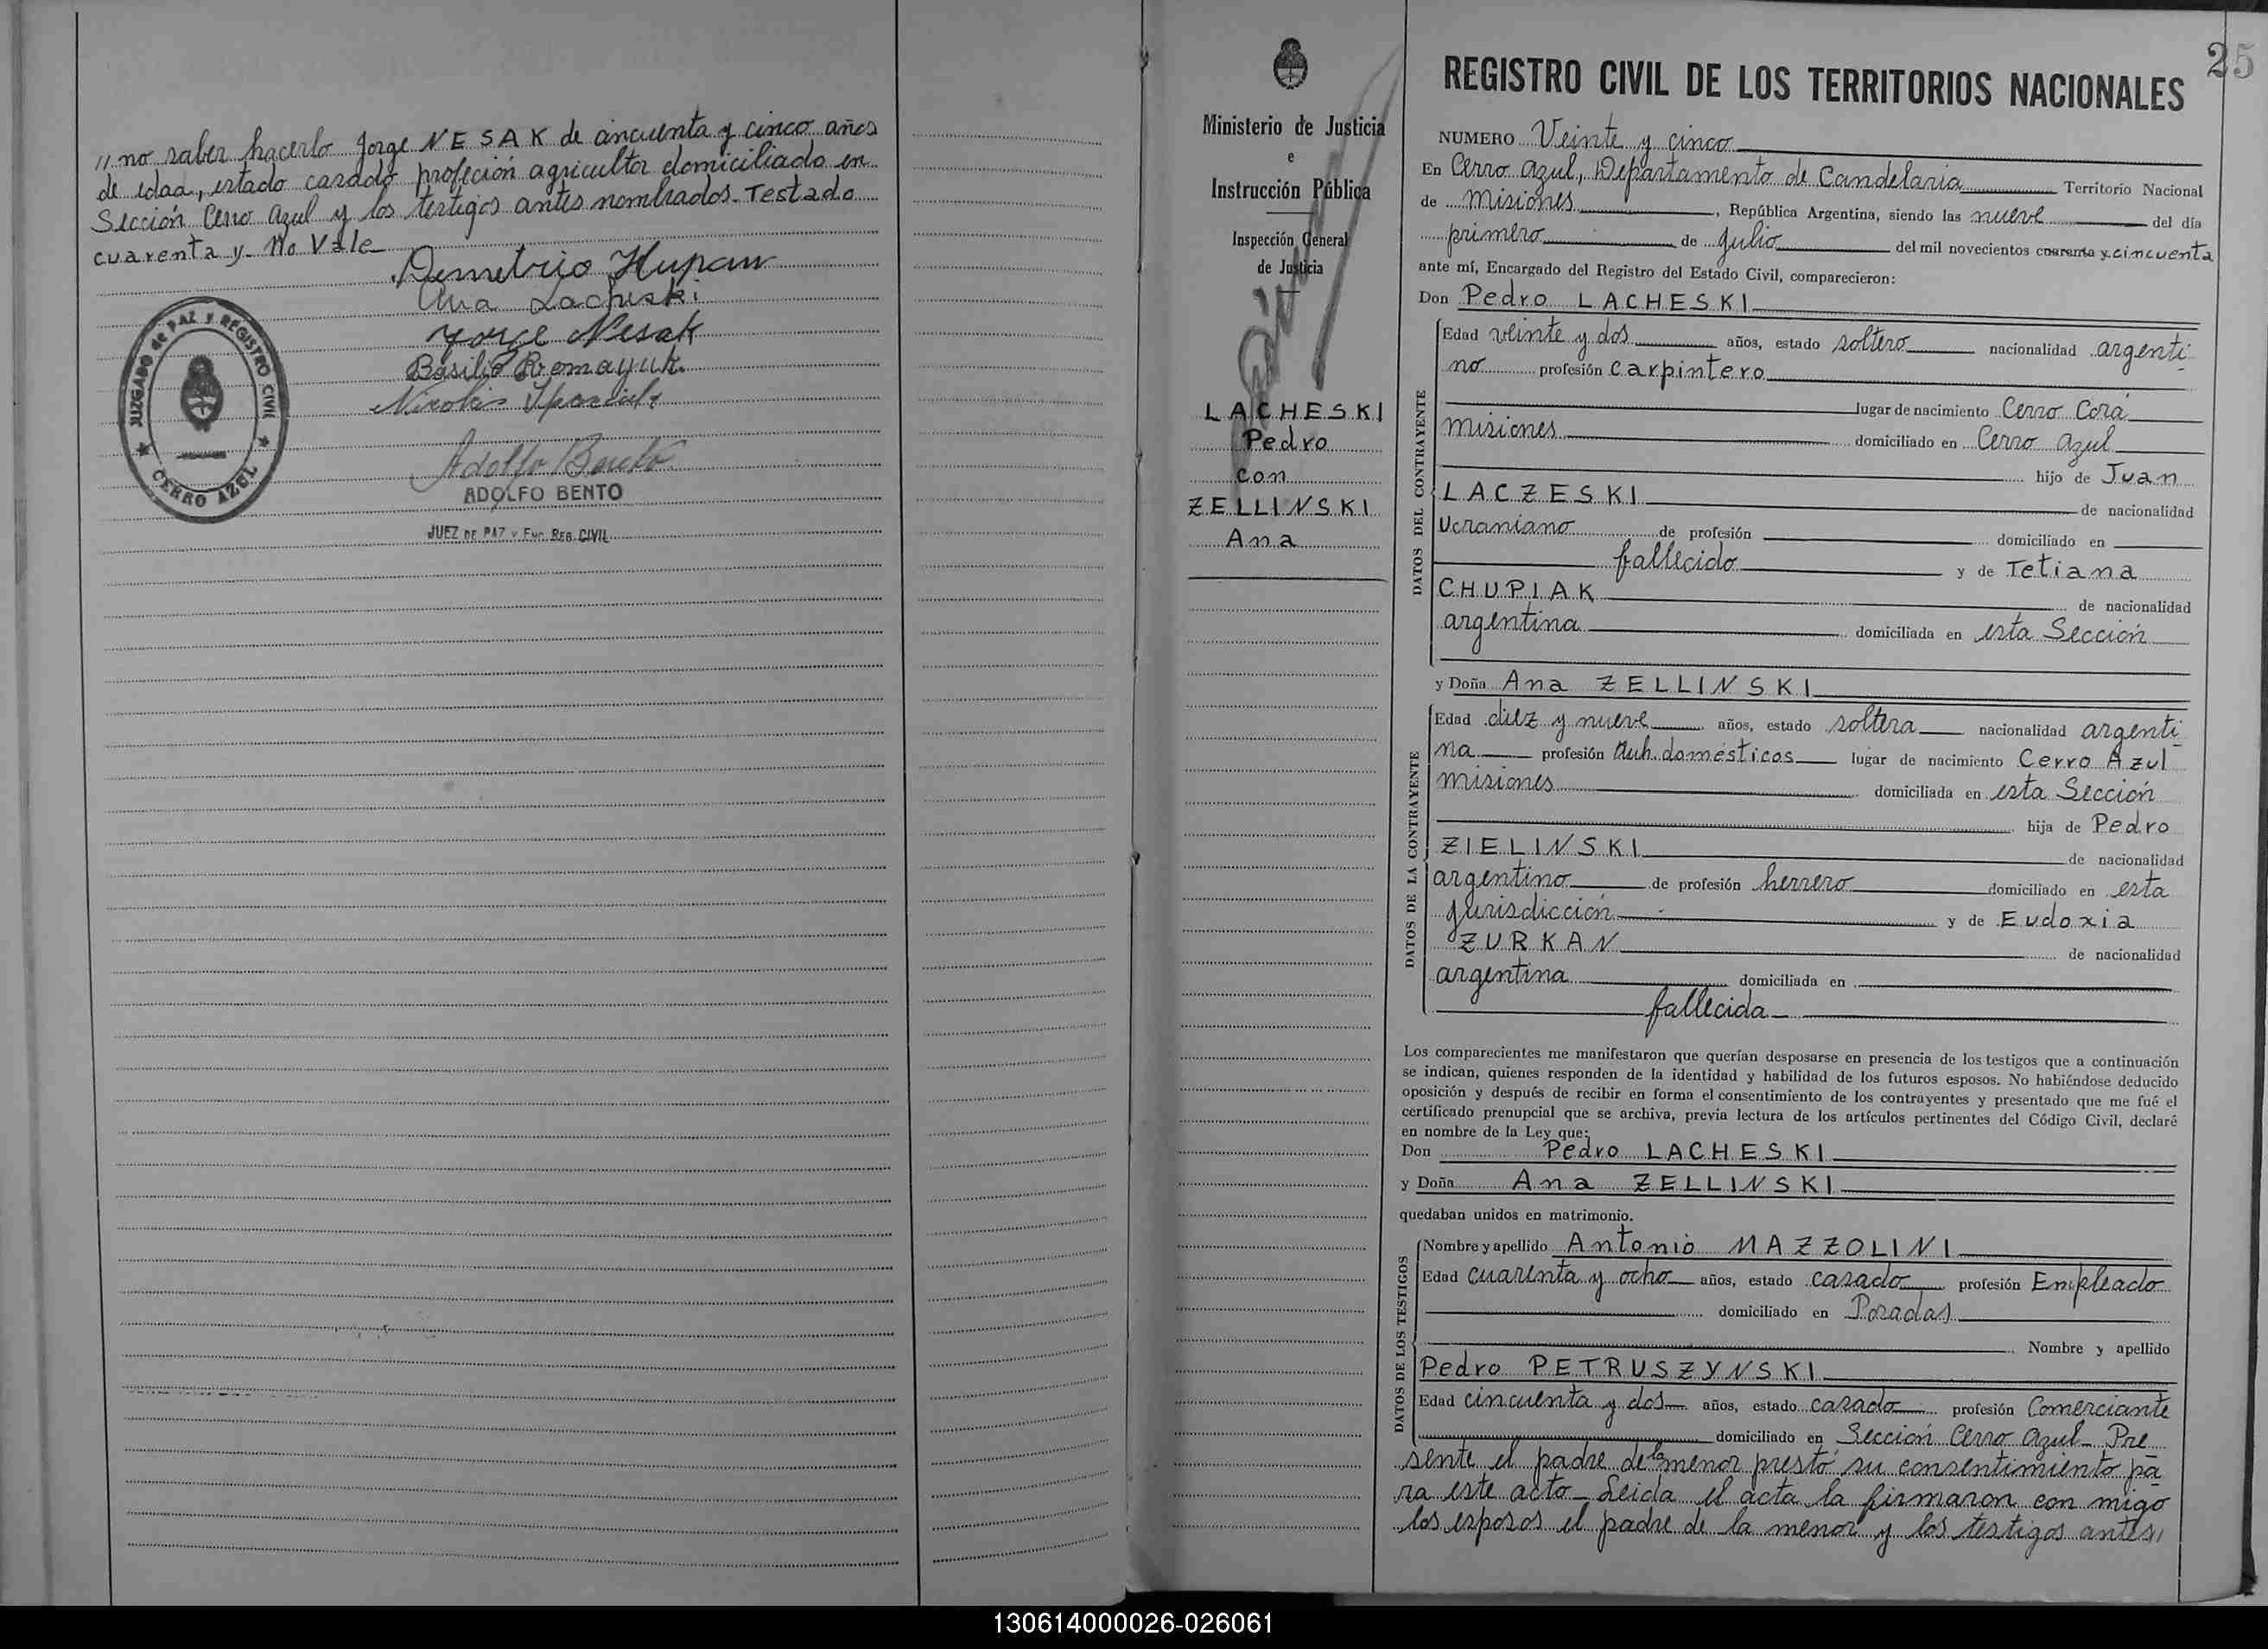 // no saber hacerlo Jorge NESAK de cincuenta y cinco años
de edad, estado casado profeción agricultor domiciliado en
Sección Cerro Azul y los testigos antes nombrados. Testado
cuarenta y No Vale
Demetrio Hupan
Ana Lacheski
Jorge Nesak
Basilio Romayuk
Nicolás
JUZGADO de PAZ y REGISTRO CIVIL
CERRO AZUL
Adolfo Bento
ADOLFO BENTO
JUEZ DE PAZ Y ENC. REG. CIVIL
Ministerio de Justicia
e
Instrucción Pública
Inspección General
de Justicia
LACHESKI
Pedro
con
ZELLINSKI
Ana
25
REGISTRO CIVIL DE LOS TERRITORIOS NACIONALES
NUMERO Veinte y cinco
En Cerro Azul, Departamento de Candelaria Territorio Nacional
de Misiones, República Argentina, siendo las nueve del día
primero de Julio del mil novecientos cuarenta y cincuenta
ante mí, Encargado del Registro del Estado Civil, comparecieron:
Don Pedro LACHESKI
DATOS DEL CONTRAYENTE
Edad veinte y dos años, estado soltero nacionalidad argenti
no profesión carpintero
lugar de nacimiento Cerro Corá
Misiones domiciliado en Cerro Azul
hijo de Juan
LACZESKI de nacionalidad
Ucraniano de profesión domiciliado en
fallecido y de Tetiana
CHUPIAK de nacionalidad
argentina domiciliada en esta Sección
y Doña Ana ZELLINSKI
DATOS DE LA CONTRAYENTE
Edad diez y nueve años, estado soltera nacionalidad argenti
na profesión Queh. domésticos lugar de nacimiento Cerro Azul
Misiones domiciliada en esta Sección
hija de Pedro
ZIELINSKI de nacionalidad
argentino de profesión herrero domiciliado en esta
Jurisdicción y de Eudoxia
ZURKAN de nacionalidad
argentina domiciliada en
fallecida
Los comparecientes me manifestaron que querían desposarse en presencia de los testigos que a continuación
se indican, quienes responden de la identidad y habilidad de los futuros esposos. No habiéndose deducido
oposición y después de recibir en forma el consentimiento de los contrayentes y presentado que me fué el
certificado prenupcial que se archiva, previa lectura de los artículos pertinentes del Código Civil, declaré
en nombre de la Ley que:
Don Pedro LACHESKI
y Doña Ana ZELLINSKI
quedaban unidos en matrimonio.
DATOS DE LOS TESTIGOS
Nombre y apellido Antonio MAZZOLINI
Edad cuarenta y ocho años, estado casado profesión Empleado
domiciliado en Posadas
Nombre y apellido
Pedro PETRUSZYNSKI
Edad cincuenta y dos años, estado casado profesión Comerciante
domiciliado en Sección Cerro Azul - Pre
sente el padre de la menor prestó su consentimiento pa
ra este acto - Leida el acta la firmaron con migo
los esposos el padre de la menor y los testigos antes//
130614000026-026061